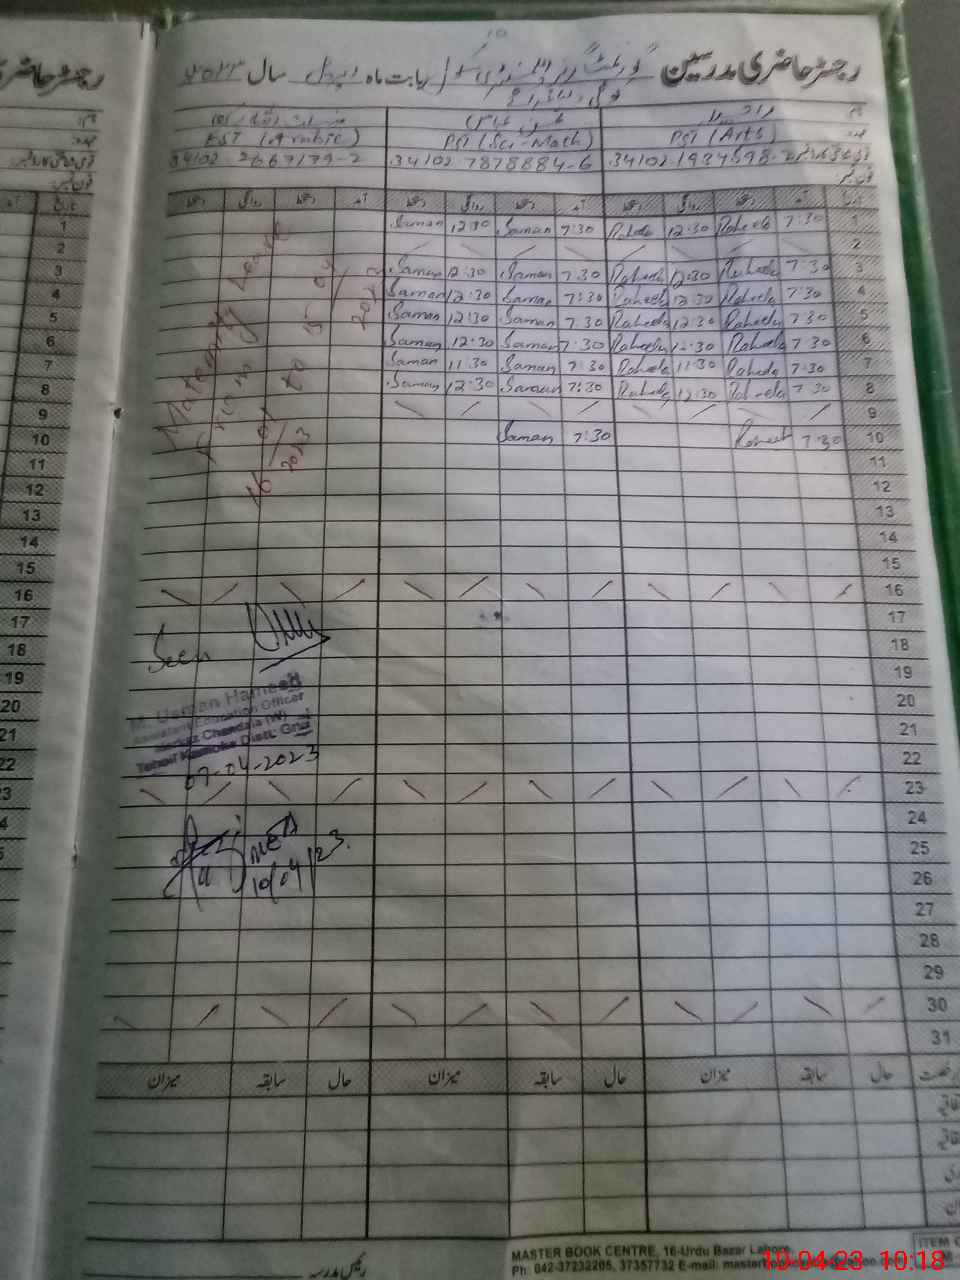 رجسٹر حاضری مدرسین گورنمنٹ گرلز بابت ماہ اپریل سال ۲۰۲۳
رجسٹر حاضری
نام راحیلہ
عہدہ PST (Arts) PST (Sci-Math) EST (Arabic)
34101 1934598- 34102 7878884-6 34102 2667179-2
فون نمبر
تاریخ آمد دستخط روانگی دستخط آمد دستخط روانگی دستخط آمد دستخط روانگی دستخط
1 7:30 Raheela 12:30 Raheela 7:30 Saman 12:30 Saman
2
3 7:30 Raheela 12:30 Raheela 7:30 Saman 12:30 Saman
4 7:30 Raheela 12:30 Raheela 7:30 Saman 12:30 Saman
5 7:30 Raheela 12:30 Raheela 7:30 Saman 12:30 Saman
6 7:30 Raheela 12:30 Raheela 7:30 Saman 12:30 Saman
7 7:30 Raheela 11:30 Raheela 7:30 Saman 11:30 Saman
8 7:30 Raheela 12:30 Raheela 7:30 Saman 12:30 Saman
9
10 7:30 Raheela 7:30 Saman
11
12
13
14
15
16
17
18
19
20
21
22
23
24
25
26
27
28
29
30
31
Maternity Leave
From 16/01/2023 to 15/04/202
Seen
M. Usman Hameed
Assistant Education Officer
Markaz Chandala (W)
Tehsil Kamoke Distt. Grw
07-04-2023
MEA
10/04/23.
رخصت حال سابقہ میزان حال سابقہ میزان حال سابقہ میزان
رئیس مدرسہ
MASTER BOOK CENTRE, 16-Urdu Bazar Lahore.
Ph: 042-37232205, 37357732 E-mail:
ITEM
10-04-23 10:18